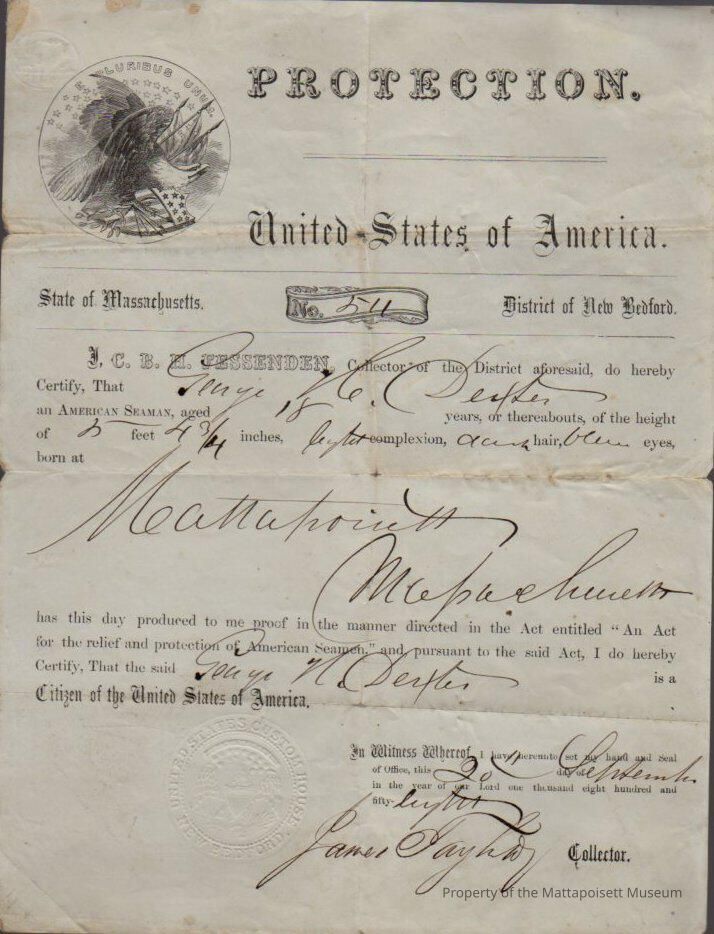 E PLURIBUS UNUM.
PROTECTION.
United States of America.
State of Massachusetts.
No. 511
District of New Bedford.
I, C. B. H. FESSENDEN, Collector of the District aforesaid, do hereby
Certify, That George H. C. Dexter
an AMERICAN SEAMAN, aged 18 years, or thereabouts, of the height
of 5 feet 4 3/4 inches, light complexion, dark hair, blue eyes,
born at
Mattapoisett
Massachusetts
has this day produced to me proof in the manner directed in the Act entitled "An Act
for the relief and protection of American Seamen," and pursuant to the said Act, I do hereby
Certify, That the said George H. C. Dexter is a
Citizen of the United States of America.
UNITED STATES CUSTOM HOUSE
NEW BEDFORD.
In Witness Whereof, I have hereunto set my hand and Seal
of Office, this 20th day of September
in the year of our Lord one thousand eight hundred and
fifty-eight
James Taylor Collector.
Property of the Mattapoisett Museum